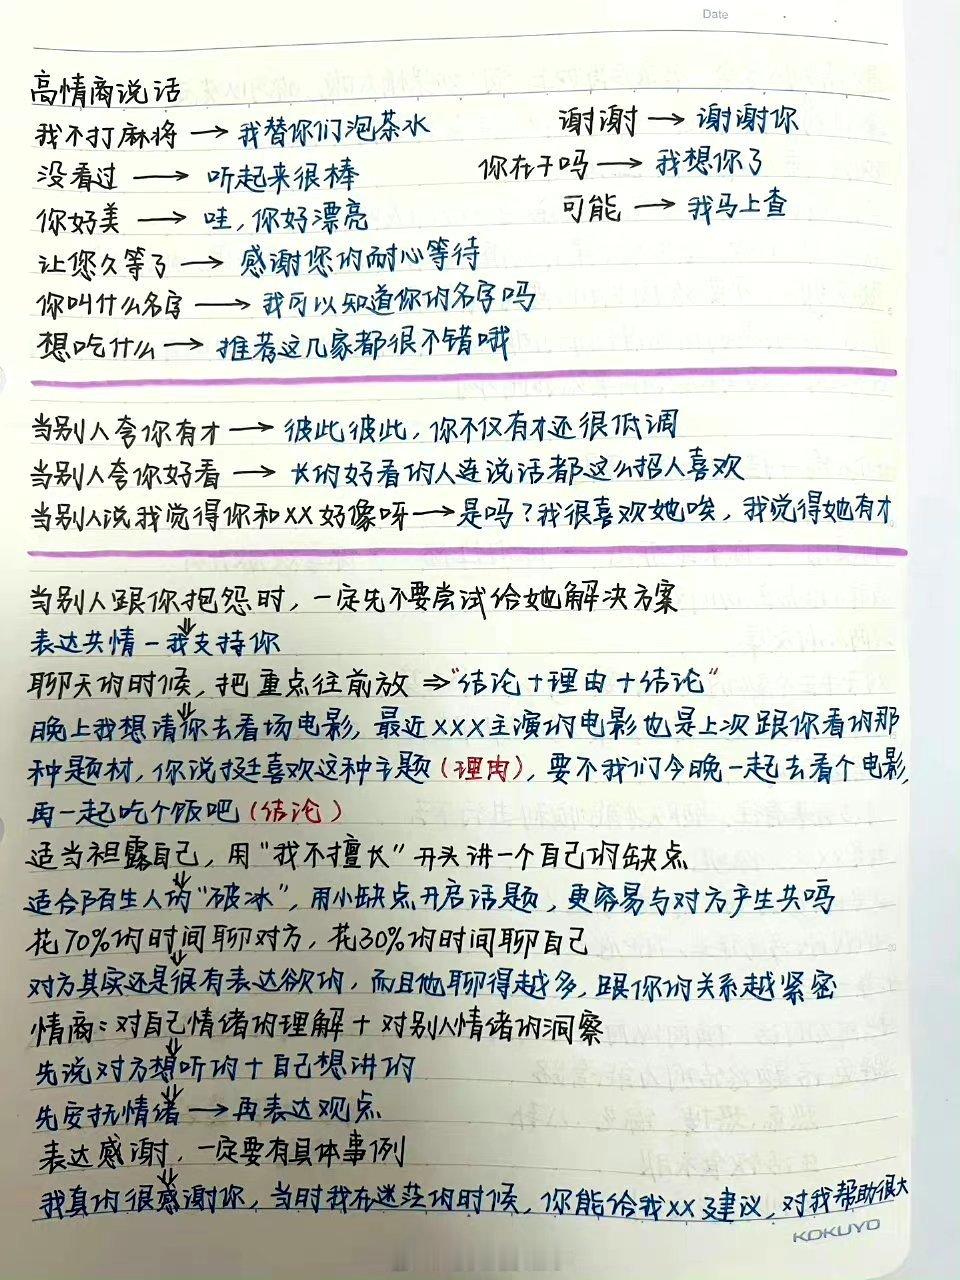 Date
高情商说话
我不打麻将 → 我替你们泡茶水
谢谢 → 谢谢你
没看过 → 听起来很棒
你在干吗 → 我想你了
你好美 → 哇，你好漂亮
可能 → 我马上查
让您久等了 → 感谢您的耐心等待
你叫什么名字 → 我可以知道你的名字吗
想吃什么 → 推荐这几家都很不错哦
当别人夸你有才 → 彼此彼此，你不仅有才还很低调
当别人夸你好看 → 长的好看的人连说话都这么招人喜欢
当别人说我觉得你和XX好像呀 → 是吗？我很喜欢她唉，我觉得她有才
当别人跟你抱怨时，一定先不要尝试给她解决方案
⇓
表达共情－我支持你
聊天的时候，把重点往前放 ⇒ "结论＋理由＋结论"
⇓
晚上我想请你去看场电影，最近XXX主演的电影也是上次跟你看的那
种题材，你说挺喜欢这种主题（理由），要不我们今晚一起去看个电影，
再一起吃个饭吧（结论）
适当袒露自己，用"我不擅长"开头讲一个自己的缺点
⇓
适合陌生人的"破冰"，用小缺点开启话题，更容易与对方产生共鸣
花70%的时间聊对方，花30%的时间聊自己
⇓
对方其实还是很有表达欲的，而且他聊得越多，跟你的关系越紧密
情商：对自己情绪的理解＋对别人情绪的洞察
⇓
先说对方想听的＋自己想讲的
⇓
先安抚情绪 → 再表达观点
表达感谢，一定要有具体事例
⇓
我真的很感谢你，当时我在迷茫的时候，你能给我XX建议，对我帮助很大
KOKUYO